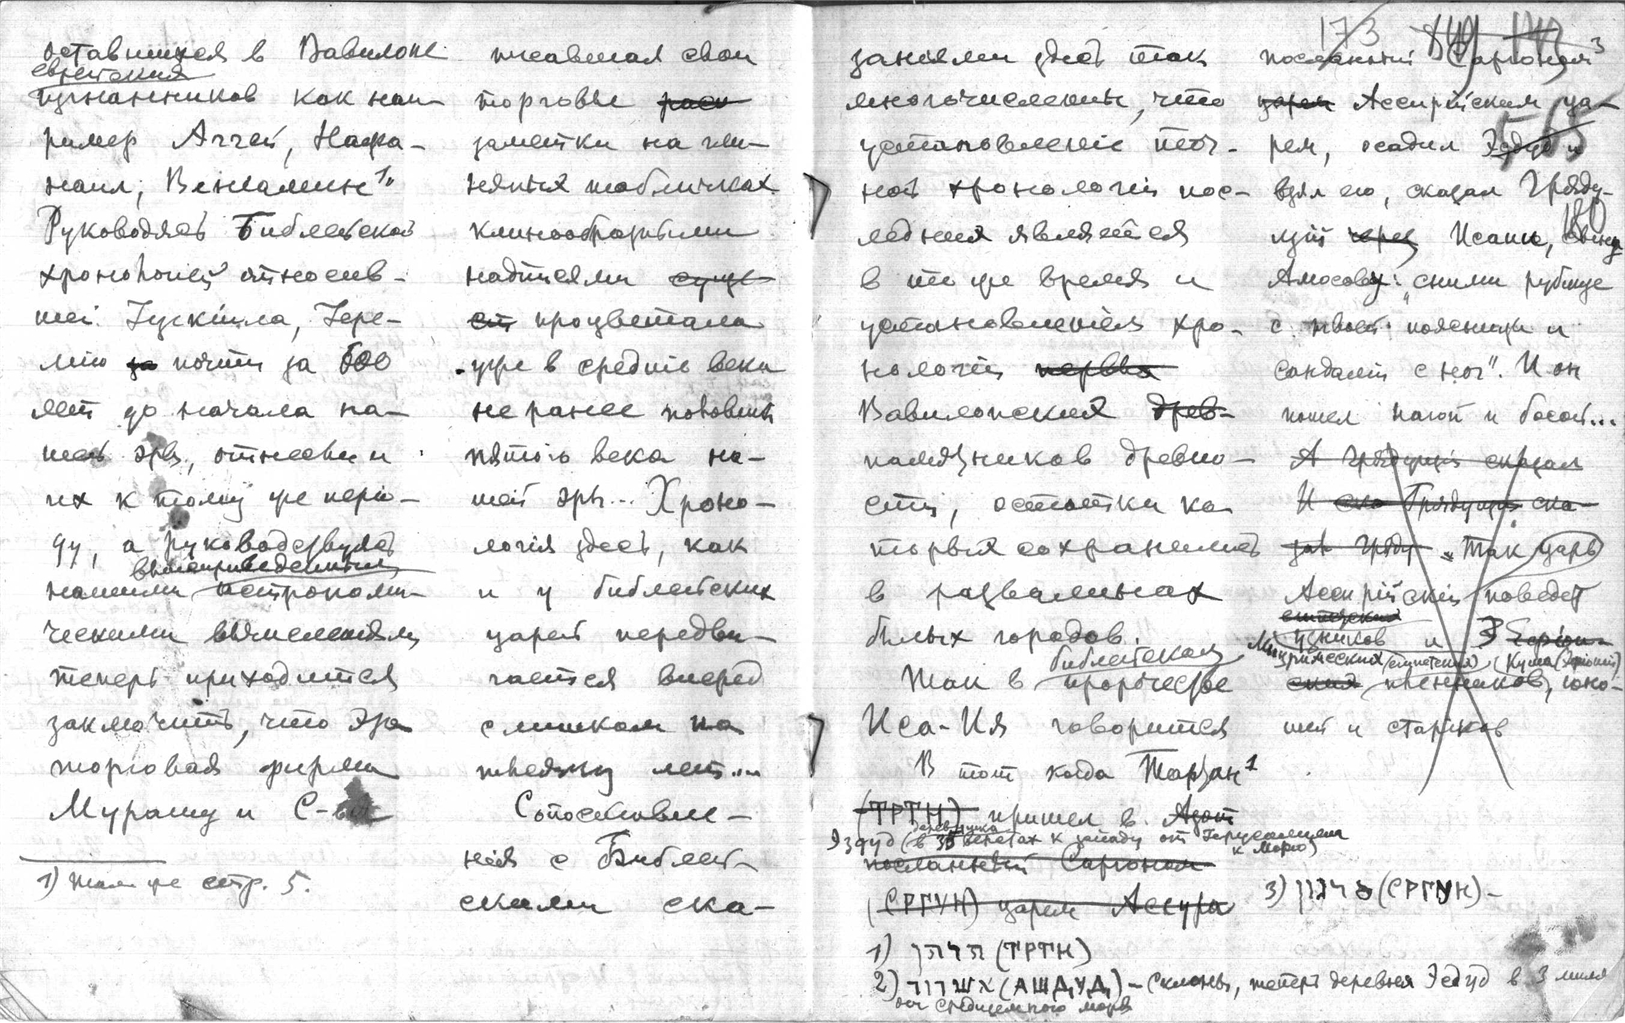 оставшихся в Вавилоне
еврейских
изгнанников как нап-
ример Аггей, Нафа-
наил, Вениамин 1)
Руководясь Библейской
хронологией относив-
шей Iезекіила, Iере-
мію за почти за 600
лет до начала на-
шей эры, отнесли и
их к тому же перiо-
ду, а руководствуясь
вышеприведенными
нашими астрономи-
ческими вычислениями
теперь приходится
заключить, что эта
торговая фирма
Мурашу и С-вья
1) Там же стр. 5.
писавшая свои
торговые
заметки на гли-
няных табличках
клинообразными
надписями
процветала
уже в средніе века
не ранее половины
пятого века на-
шей эры... Хроно-
логія здесь, как
и у библейских
царей передви-
гается вперед
слишком на
тысячу лет...
Сопоставле-
нія с Библей-
скими ска-
заніями здесь так
многочисленны, что
установленіе точ-
ной хронологіи пос-
ледния является
в то же время и
установленіем хро-
нологіи
Вавилонских древ-
памятников древно-
сти, остатки ко
торых сохранились
в развалинах
былых городов.
Так в библейском
пророчестве
Иса-Ия говорится
В тот когда Тартан 1
(ТРТН) пришел в Азот
Эздуд (деревушка в 35 верстах к западу от Iерусалима
к морю)
посланный Саргоном
(СРГУН) царем Ассура
1) תרתן (ТРТН)
2) אשדוד (АШДУД) – Склоны, теперь деревня Эсдуд в 3 милях
от Средиземного моря
173
посланный Саргоном 3
царем Ассирійским ца-
рем, осадил Эздуд и
565
взял его, сказал Гряду-
180
щій через Исаию,
Амосову: "сними рубище
с твоей поясницы и
сандаліи с ног". И он
пошел нагой и босой...
А Грядущій сказал
И ско Грядущій ска-
зал Гряду „Так царь
Ассирійскій поведет
египетских
узников и
Мицрійских (египетских) (Куша (Эфіопии)
ских пленников, юно-
шей и стариков
3) סרגון (СРГУН) –